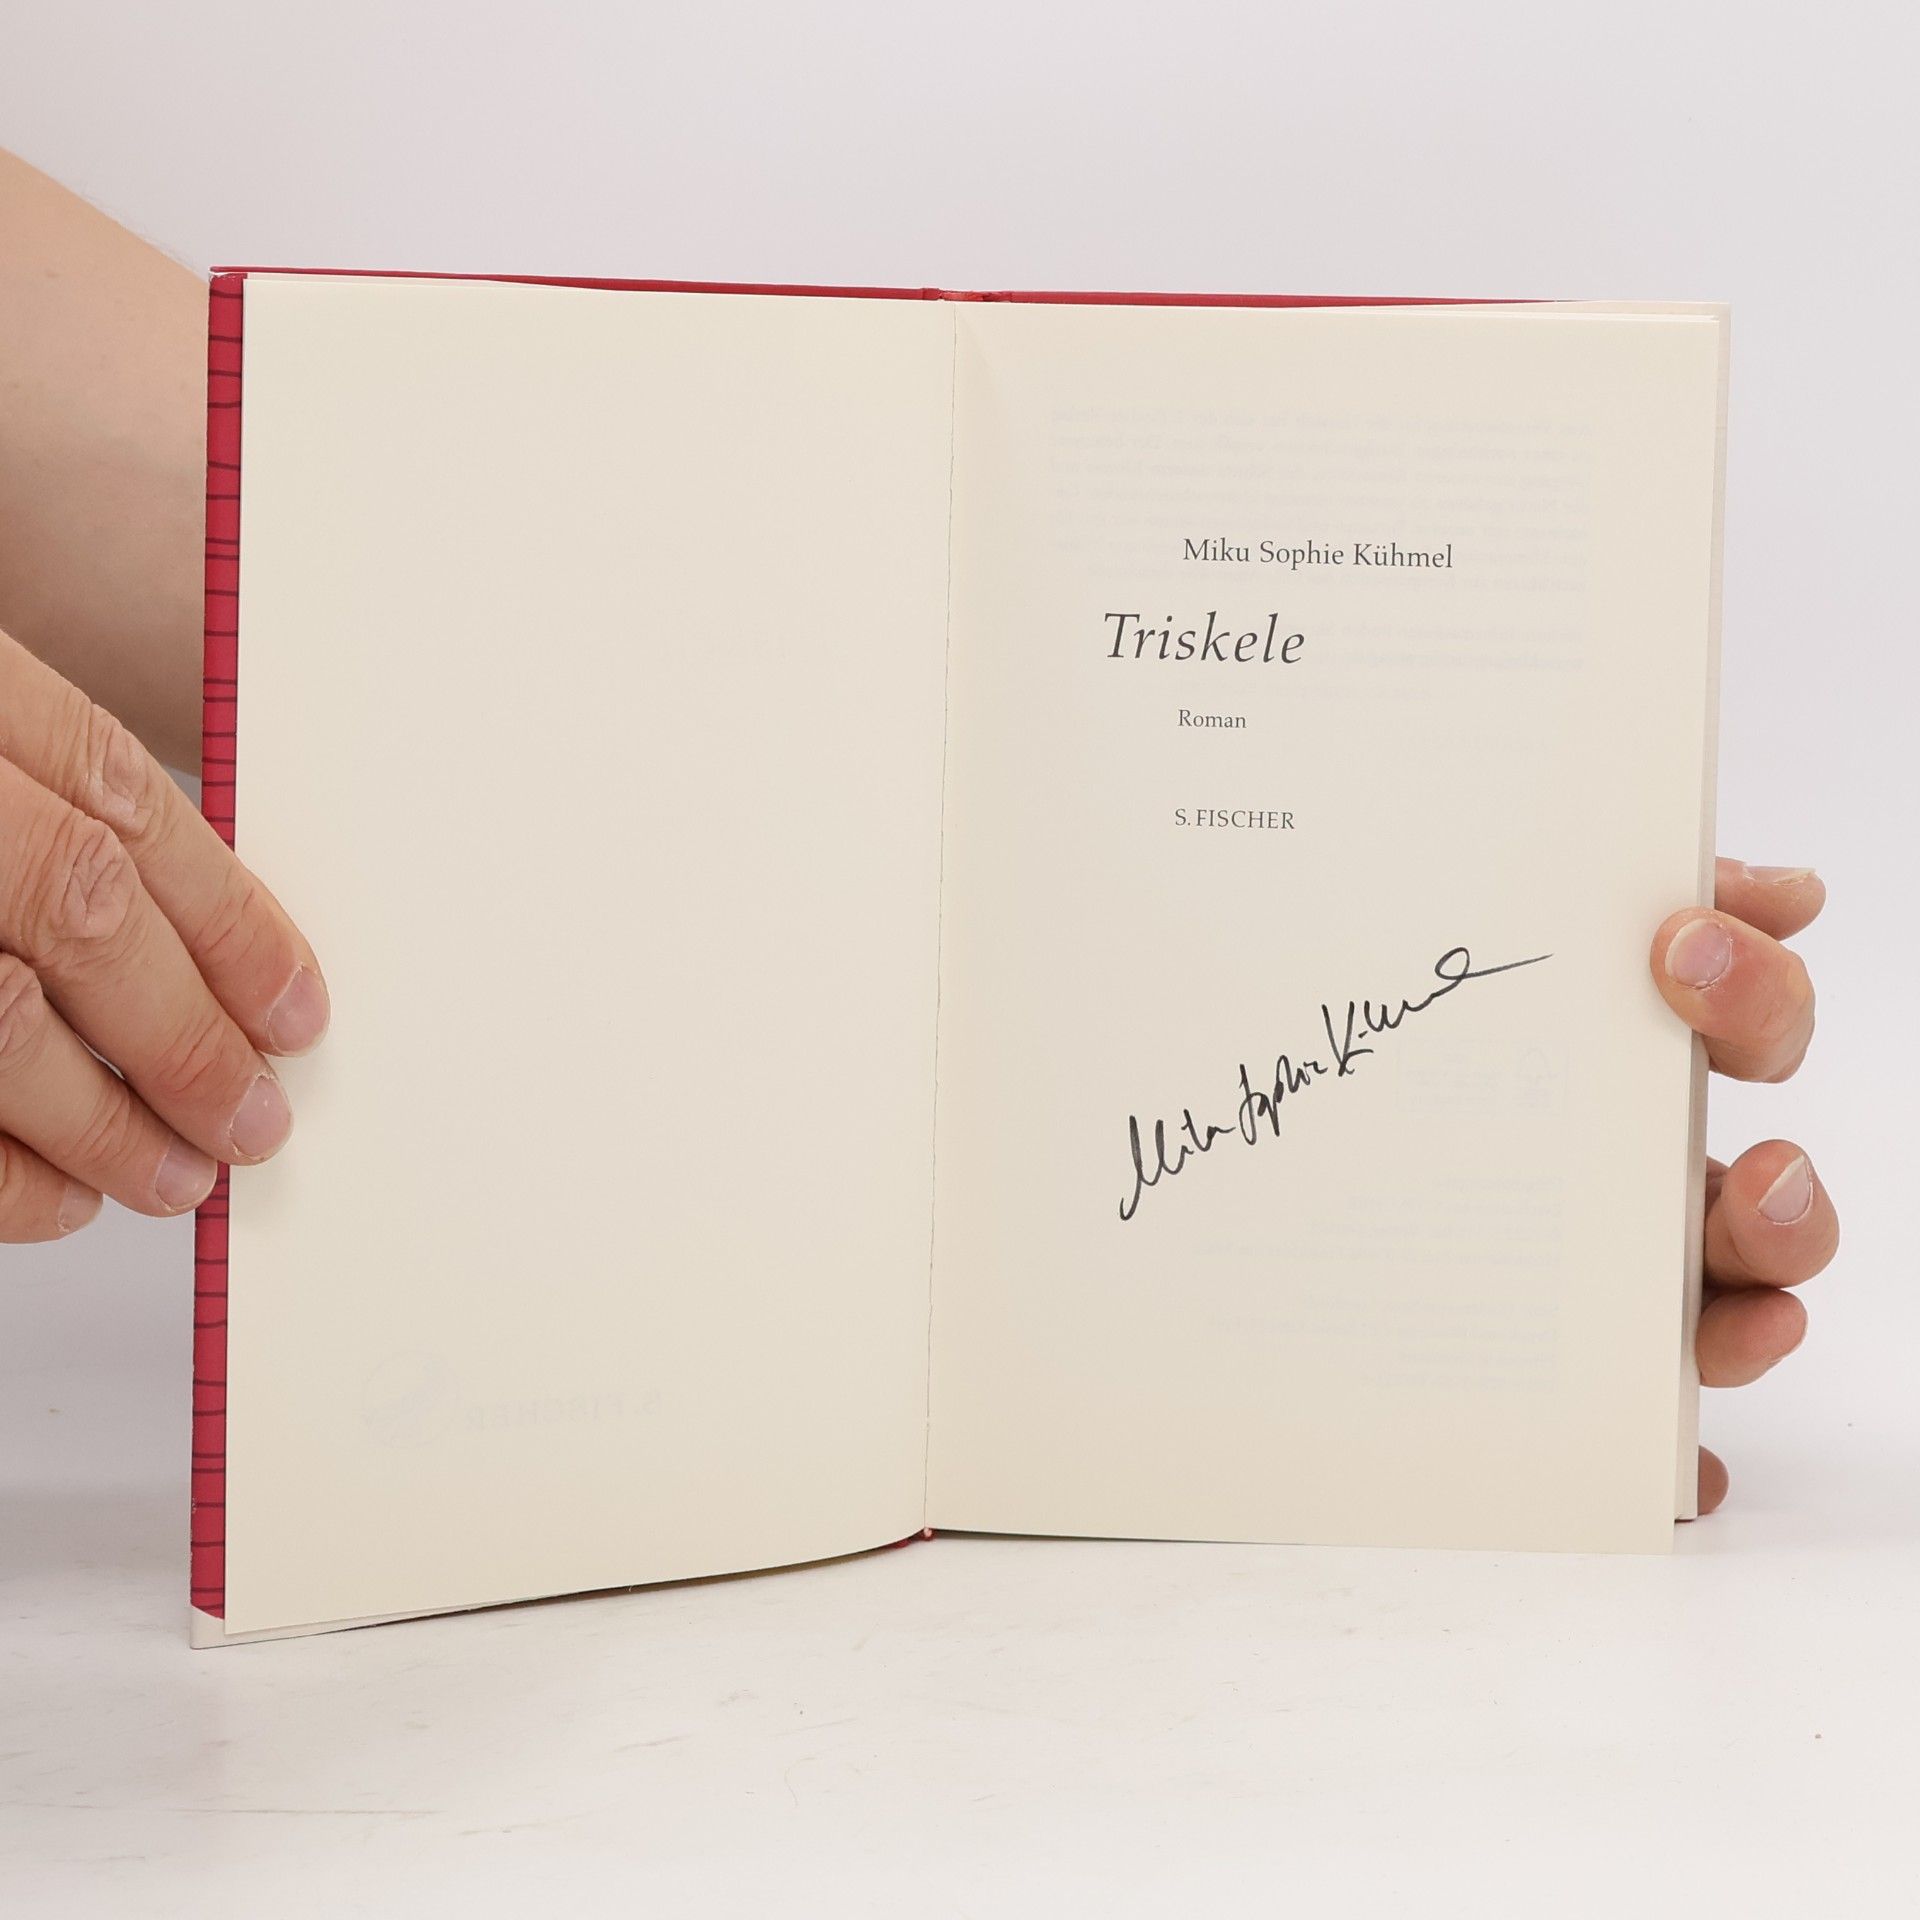 Miku Sophie Kühmel
Triskele
Roman
S. FISCHER
Miku Sophie Kühmel